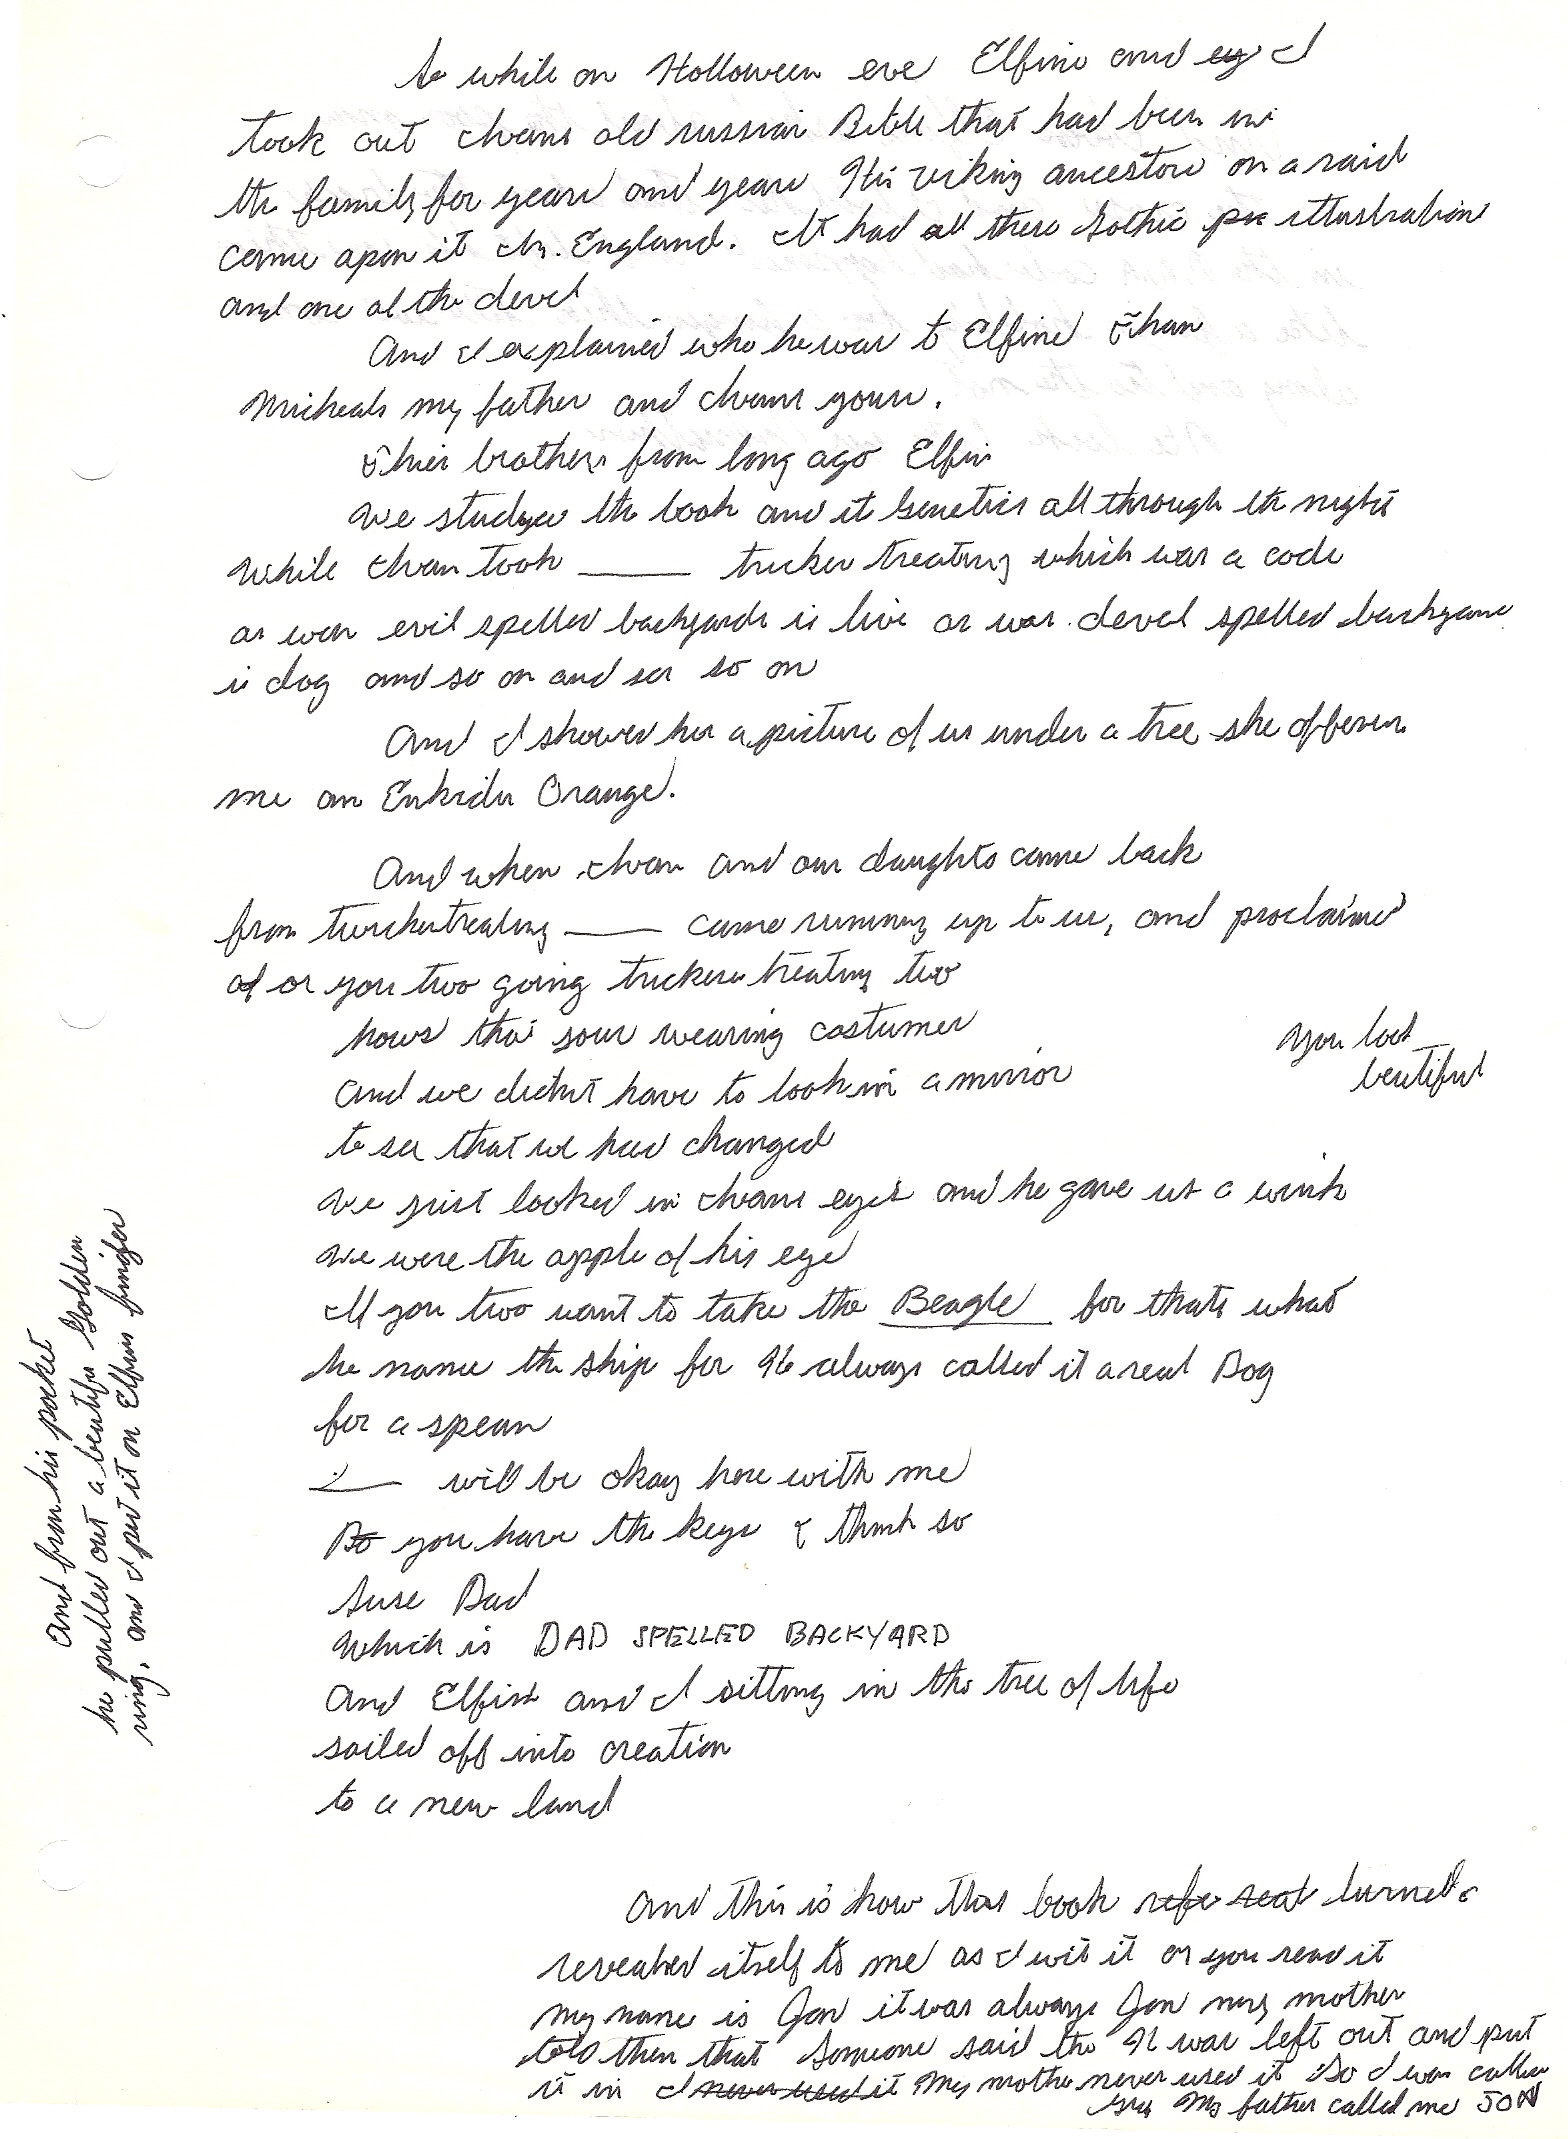 So while on Holloween eve Elfine and ey I
took out Ivans old russian Bible that had been in
the family for years and years His viking ancestors on a raid
came apon it In. England. It had all these Gothic pic illustrations
and one of the devel
And I explained who he was to Elfine Than
Micheals my father and Ivans yours.
Thier brothers from long ago Elfin
We studyed the book and it Genetics all through the night
While Ivan took ____ tricker treating which was a code
as was evil spelled backyards is live as was devel spelled backyards
is dog and so on and so so on
And I showed her a picture of us under a tree she offerers
me an Enkidu Orange.
And when Ivan and our daughts came back
from trickertreating ____ came running up to us, and proclaimed
of or you two going trickere treating too
hows that your wearing costumes
You look
beatiful
And we didnt have to look in a mirror
to see that we had changed
We just looked in Ivans eyes and he gave us a wink
We were the apple of his eye
If you two want to take the Beagle for thats what
he name the ship for He always called it a real Dog
for a spean
____ will be okay here with me
Do you have the keys I think so
Sure Dad
Which is DAD SPELLED BACKYARD
And Elfine and I sitting in the tree of life
sailed off into creation
to a new land
And from his pocket
he pulled out a beatiful Golden
ring, and I put it on Elfins finger
And this is how this book refe reat turned
revealed itself to me as I writ it or you read it
My name is Jon it was always Jon my mother
told then that Someone said the H was left out and put
it in I never used it My mother never used it So I was called
My father called me JON